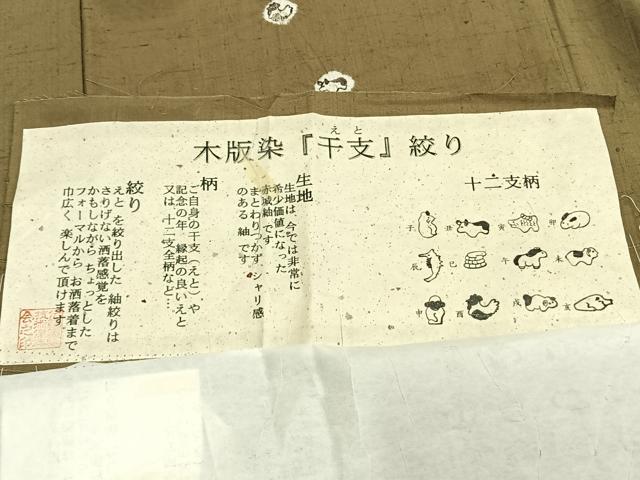 えと
木版染『干支』絞り
生地
生地は、今では非常に
希少価値になった
赤城紬です。
まとわりつかず、シャリ感
のある 紬 です
柄
ご自身の干支(えと)や
記念の年、縁起の良いえと
又は、十二支全柄など…
絞り
えと を絞り出した 紬絞りは
さりげない洒落感覚を
かもしながら ちょっとした
フォーマルから お洒落着まで
巾広く 楽しんで頂けます
十二支柄
子 丑 寅 卯
辰 巳 午 未
申 酉 戌 亥